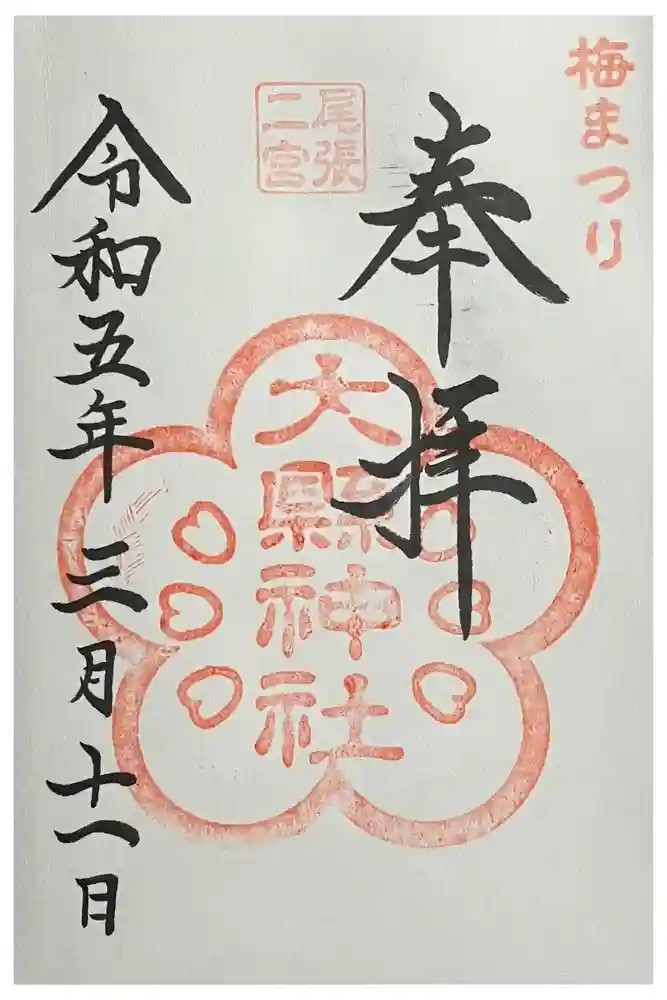 梅まつり
奉拝
尾張
二宮
大縣神社
令和五年三月十一日